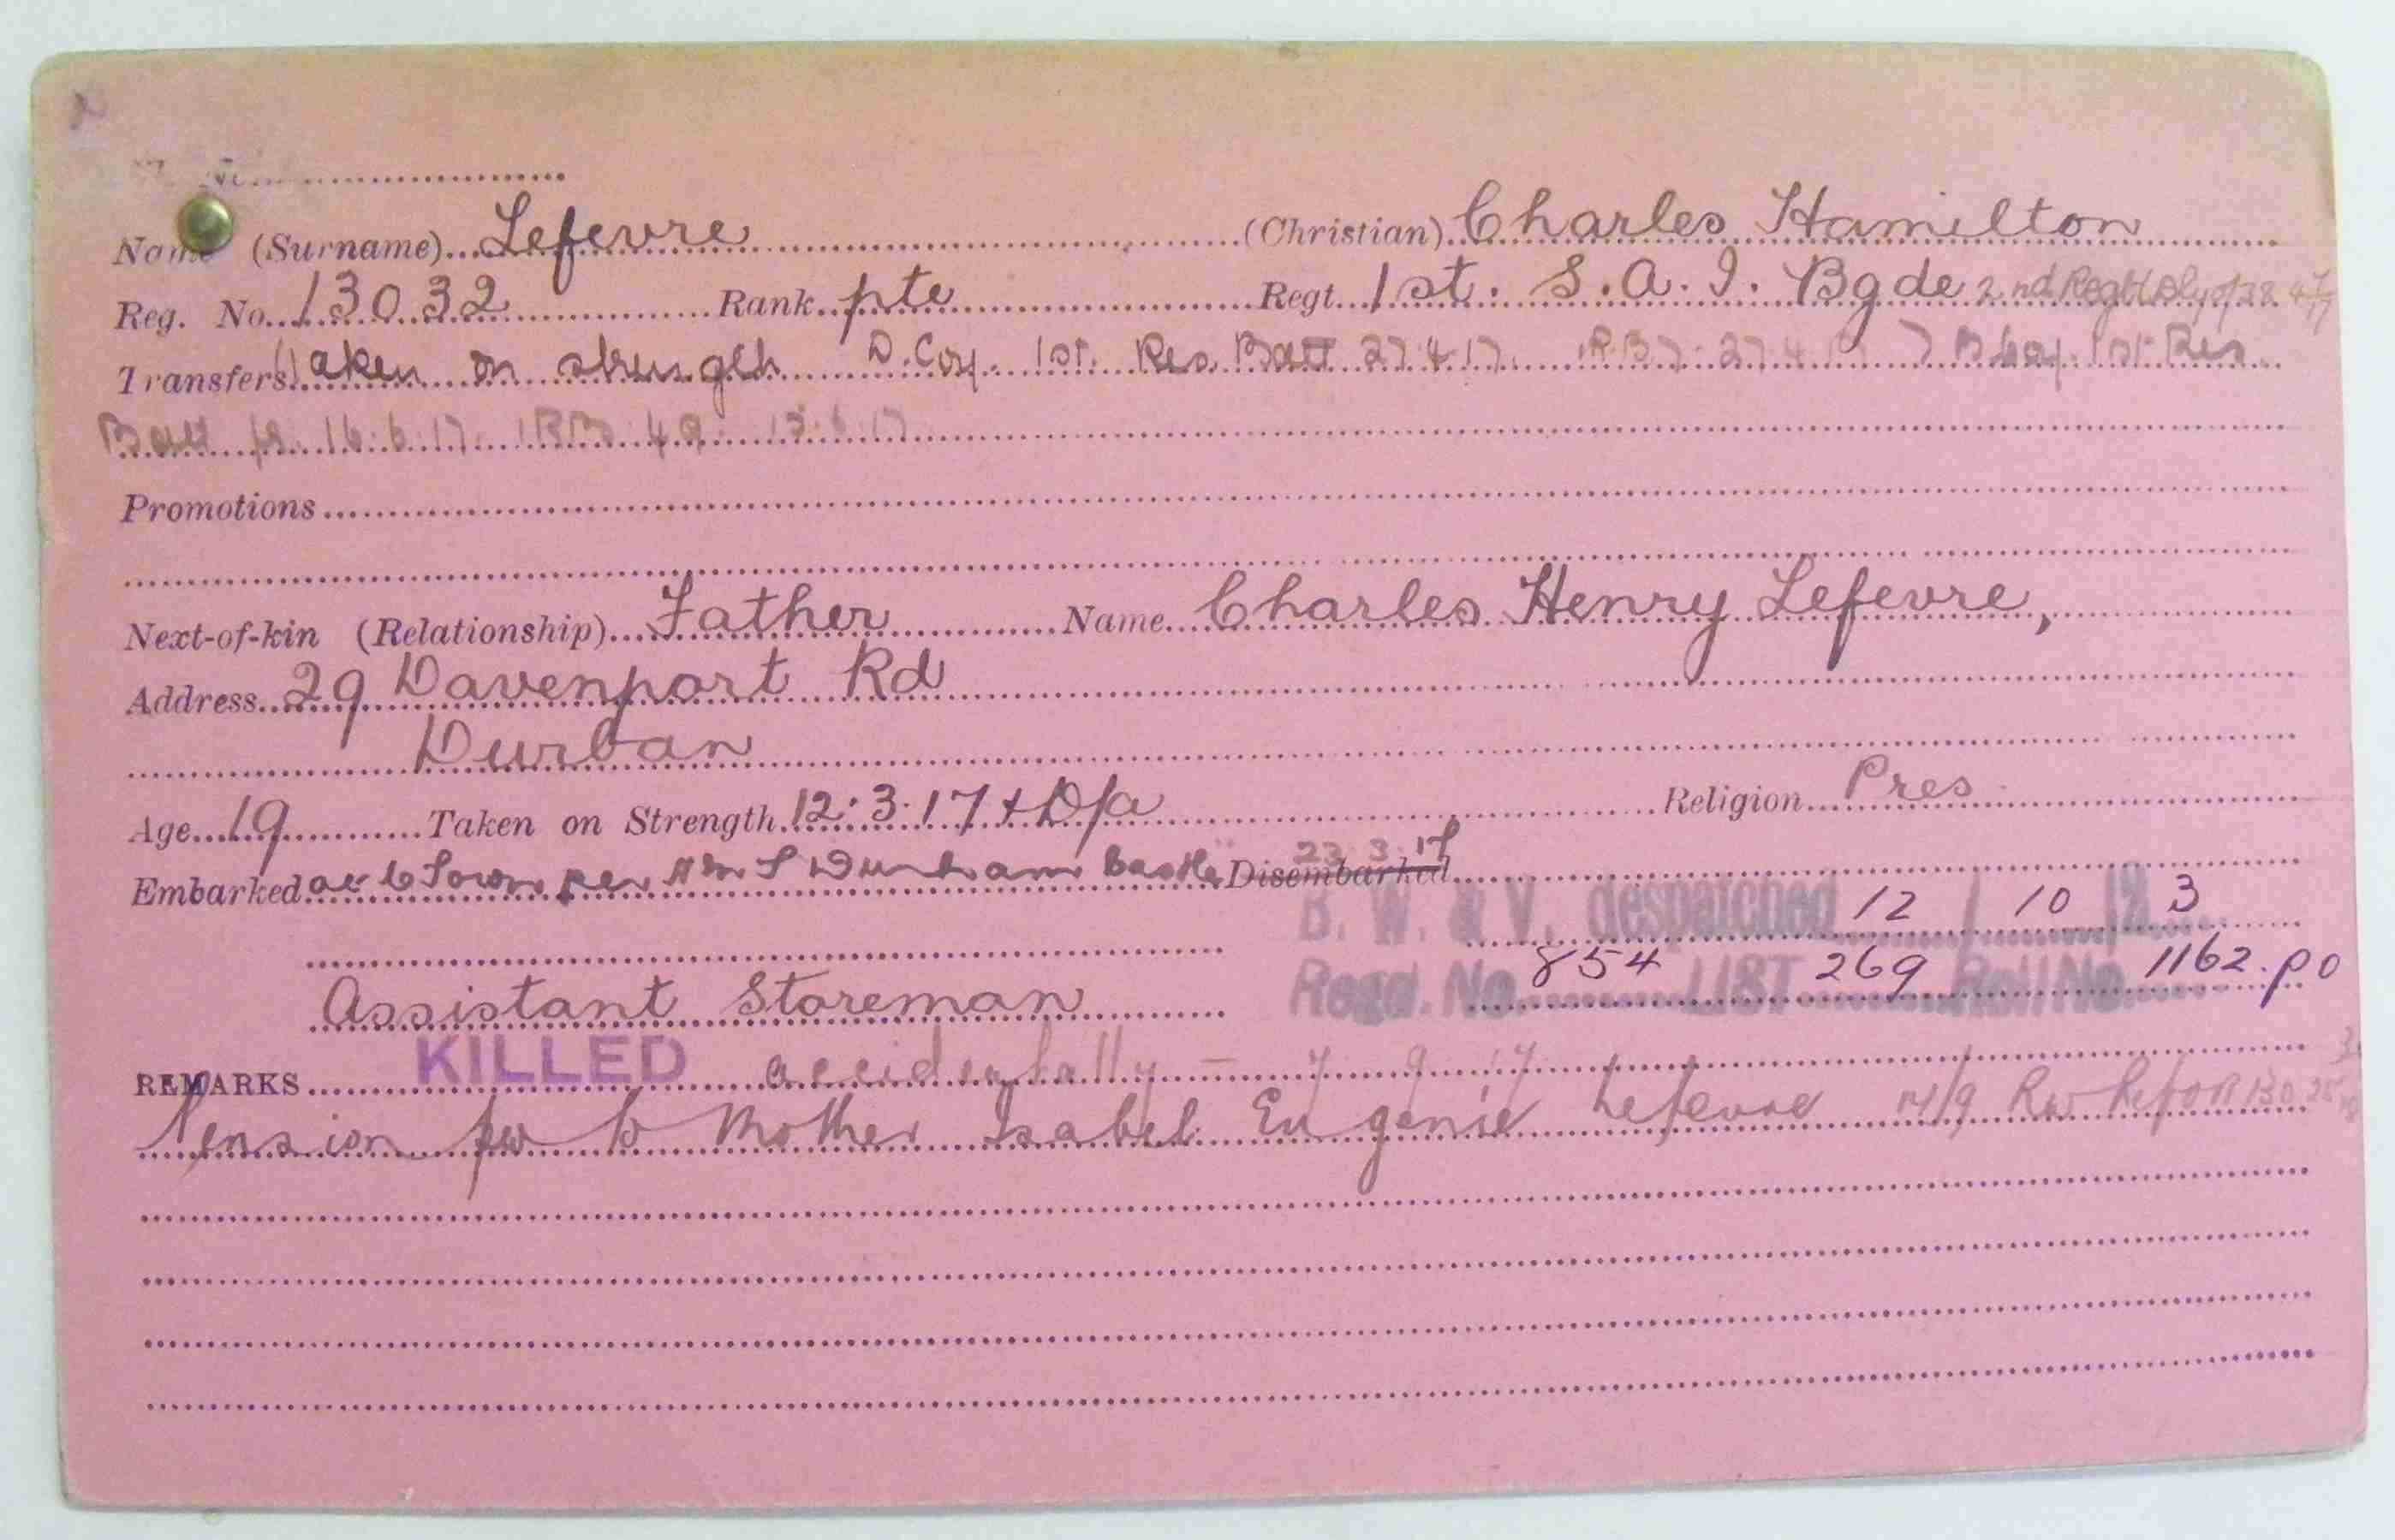 Name (Surname) Lefevre (Christian) Charles Hamilton
Reg. No. 13032 Rank pte Regt. 1st. S.A.I. Bgde 2nd Regt
Transfers Taken on strength D. Coy. 1st. Res. Batt 27.4.17. 1RB 7. 27.4.17 1st Res
Batt 16.6.17. 1RB 49
Promotions
Next-of-kin (Relationship) Father Name Charles Henry Lefevre,
Address 29 Davenport Rd
Durban
Age 19 Taken on Strength 12.3.17 + D/a Religion Pres
23 3 17
Embarked at C Town per Durham Castle Disembarked
B. W. & V. despatched 12 / 10 / 3
Assistant Storeman Regd. No. 854 LIST 269 Roll No. 1162. po
REMARKS KILLED accidentally – 7 9 17
Pension to Mother Isabel Eugenie Lefevre